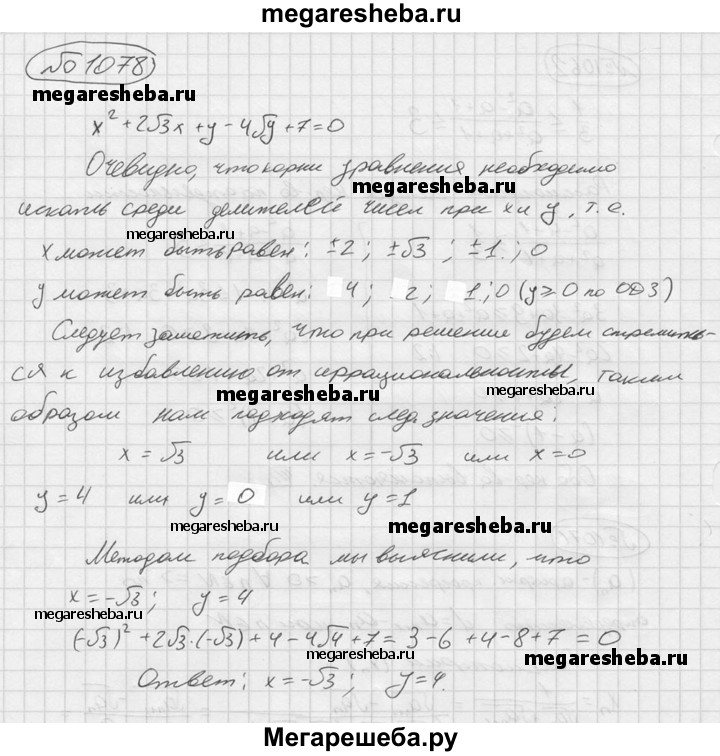 megaresheba.ru
№ 1078
megaresheba.ru
x² + 2√3x + y − 4√y + 7 = 0
Очевидно, что корни уравнения необходимо
megaresheba.ru
искать среди делителей чисел при x и y, т.е.
megaresheba.ru
x может быть равен: ±2; ±√3; ±1; 0
y может быть равен: 4; 2; 1; 0 (y ≥ 0 по ОДЗ)
Следует заметить, что при решение будем стремить-
ся к избавлению от иррациональности, таким
megaresheba.ru
megaresheba.ru
образом нам подходят след. значения:
x = √3 или x = −√3 или x = 0
y = 4 или y = 0 или y = 1
megaresheba.ru
megaresheba.ru
Методом подбора мы выяснили, что
x = −√3; y = 4
megaresheba.ru
(−√3)² + 2√3·(−√3) + 4 − 4√4 + 7 = 3 − 6 + 4 − 8 + 7 = 0
megaresheba.ru
Ответ: x = −√3; y = 4.
Мегарешеба.ру